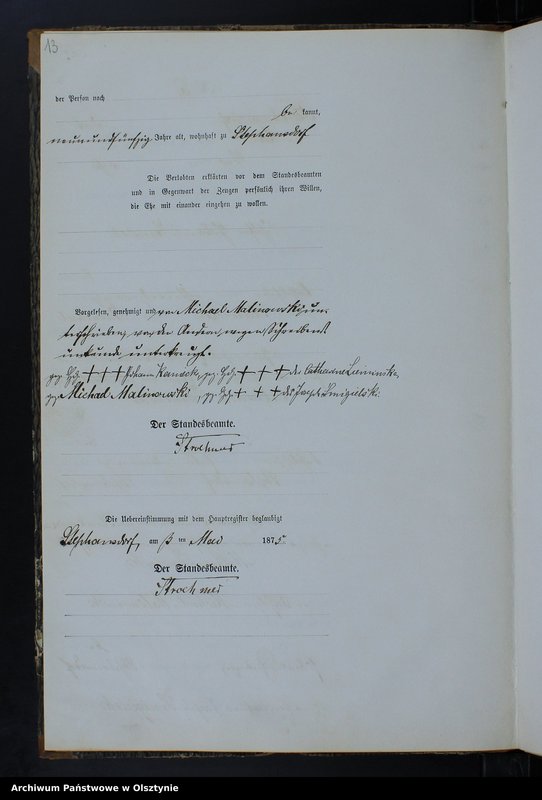 13
der Person nach
be kannt,
neunundfünfzig Jahre alt, wohnhaft zu Stephansdorf
Die Verlobten erklärten vor dem Standesbeamten
und in Gegenwart der Zeugen persönlich ihren Willen,
die Ehe mit einander eingehen zu wollen.
Vorgelesen, genehmigt und von Michael Malinowski un-
terschrieben, von den Andern wegen Schreibens
unkunde unterkreuzt.
gez. Hdz. +++ Johann, gez. Hdz. +++ der Catharina
gez. Michael Malinowski, gez. Hdz. +++ des Joseph
Der Standesbeamte.
Die Uebereinstimmung mit dem Hauptregister beglaubigt
Stephansdorf, am ten Mai 1875.
Der Standesbeamte.
Archiwum Państwowe w Olsztynie